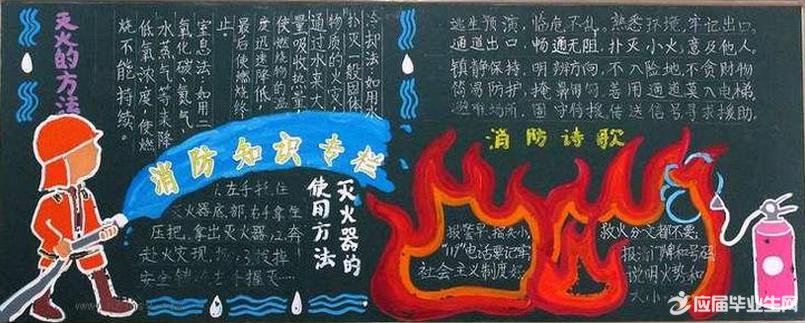 灭火的方法
冷却法:如用水
扑灭一般固体
物质的火灾,
通过水来大
量吸收热量,
使燃烧物的温
度迅速降低,
最后使燃烧终
止。
窒息法:如用二
氧化碳、氮气、
水蒸气等来降
低氧浓度,使燃
烧不能持续。
逃生预演,临危不乱。熟悉环境,牢记出口。
通道出口,畅通无阻。扑灭小火,惠及他人。
镇静保持,明辨方向,不入险地,不贪财物
简易防护,掩鼻匍匐,善用通道,莫入电梯
避难场所,固守待援,传送信号,寻求援助。
消防知识专栏
消防诗歌
灭火器的
使用方法
左手托住
灭火器底部,右手拿
压把,拿出灭火器
赴火灾现场
报警早,损失小,
"119"电话要记牢
社会主义制度好
救火分文都不要。
报清门牌和号码
说明火势和
大小
应届毕业生网